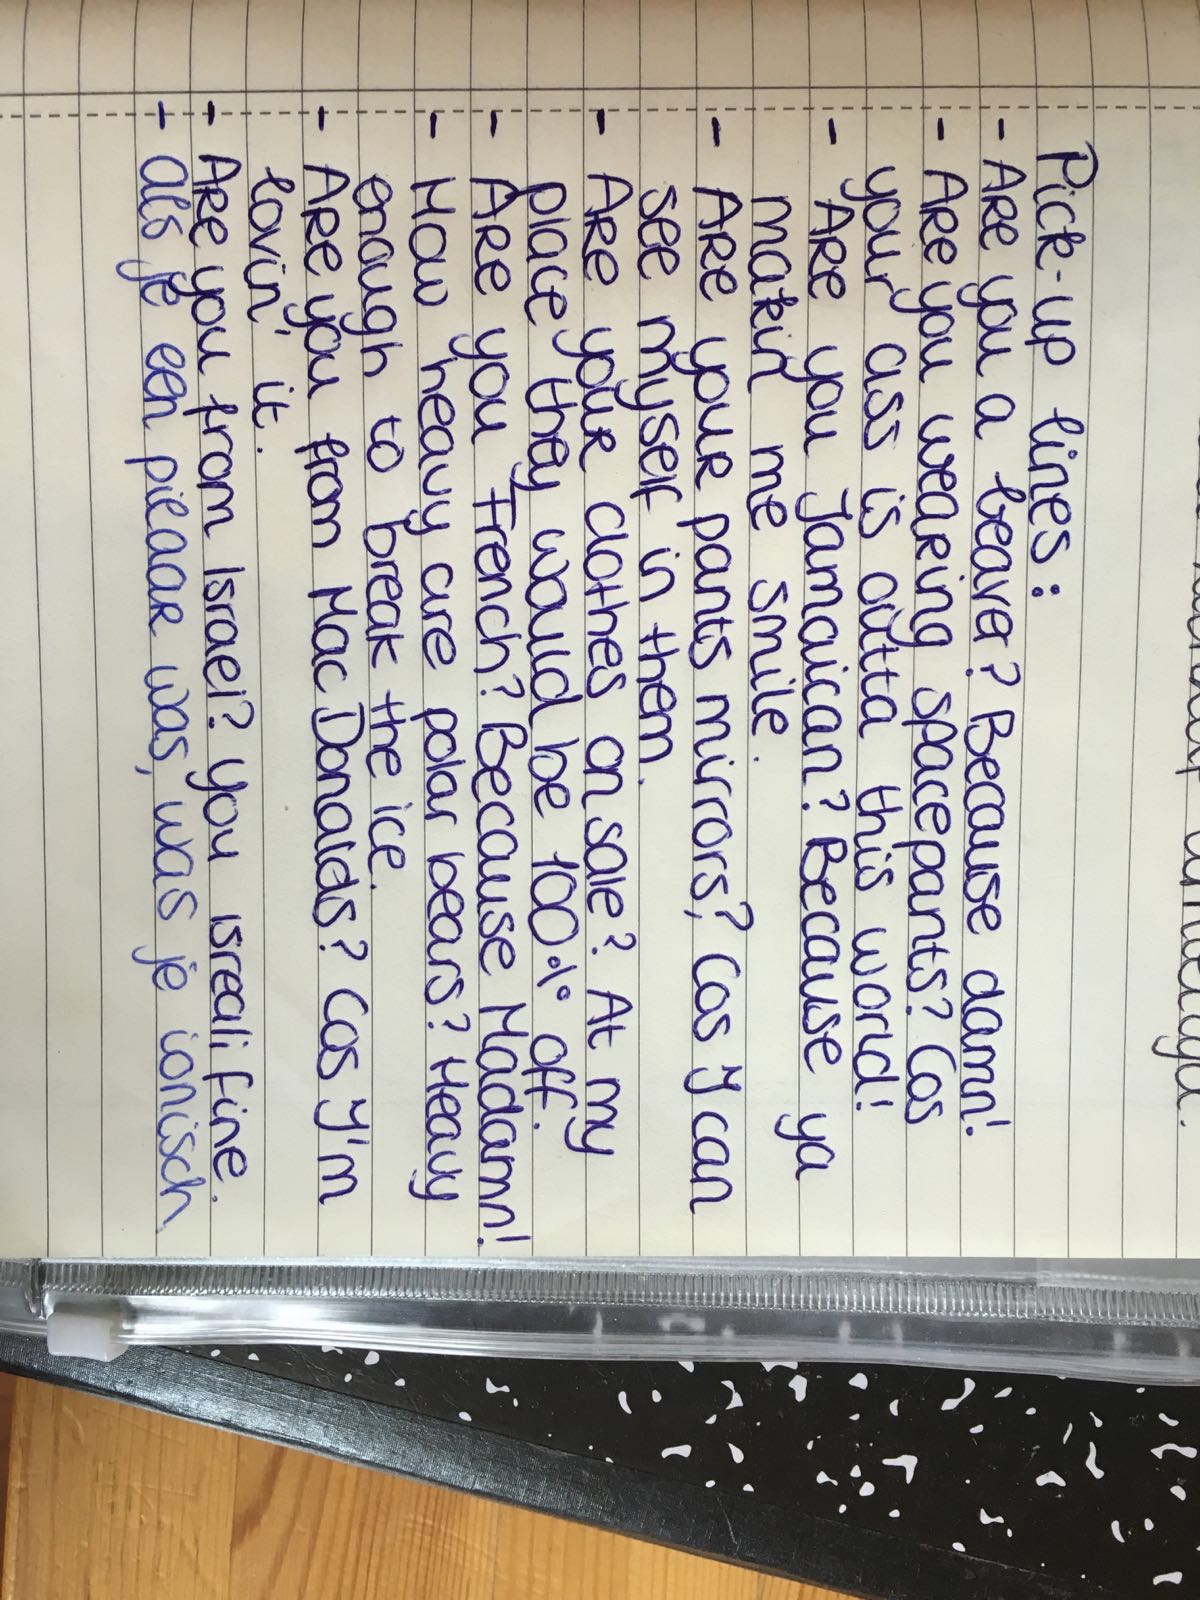 Pick-up lines:
- Are you a beaver? Because damn!
- Are you wearing space pants? Cos
your ass is outta this world!
- Are you Jamaican? Because ya
makin me smile.
- Are your pants mirrors? Cos I can
see myself in them.
- Are your clothes on sale? At my
place they would be 100% off.
- Are you French? Because Madamn!
- How heavy are polar bears? Heavy
enough to break the ice.
- Are you from MacDonalds? Cos I'm
lovin' it.
- Are you from Israel? you isreali fine.
- als je een pilaar was, was je ionisch